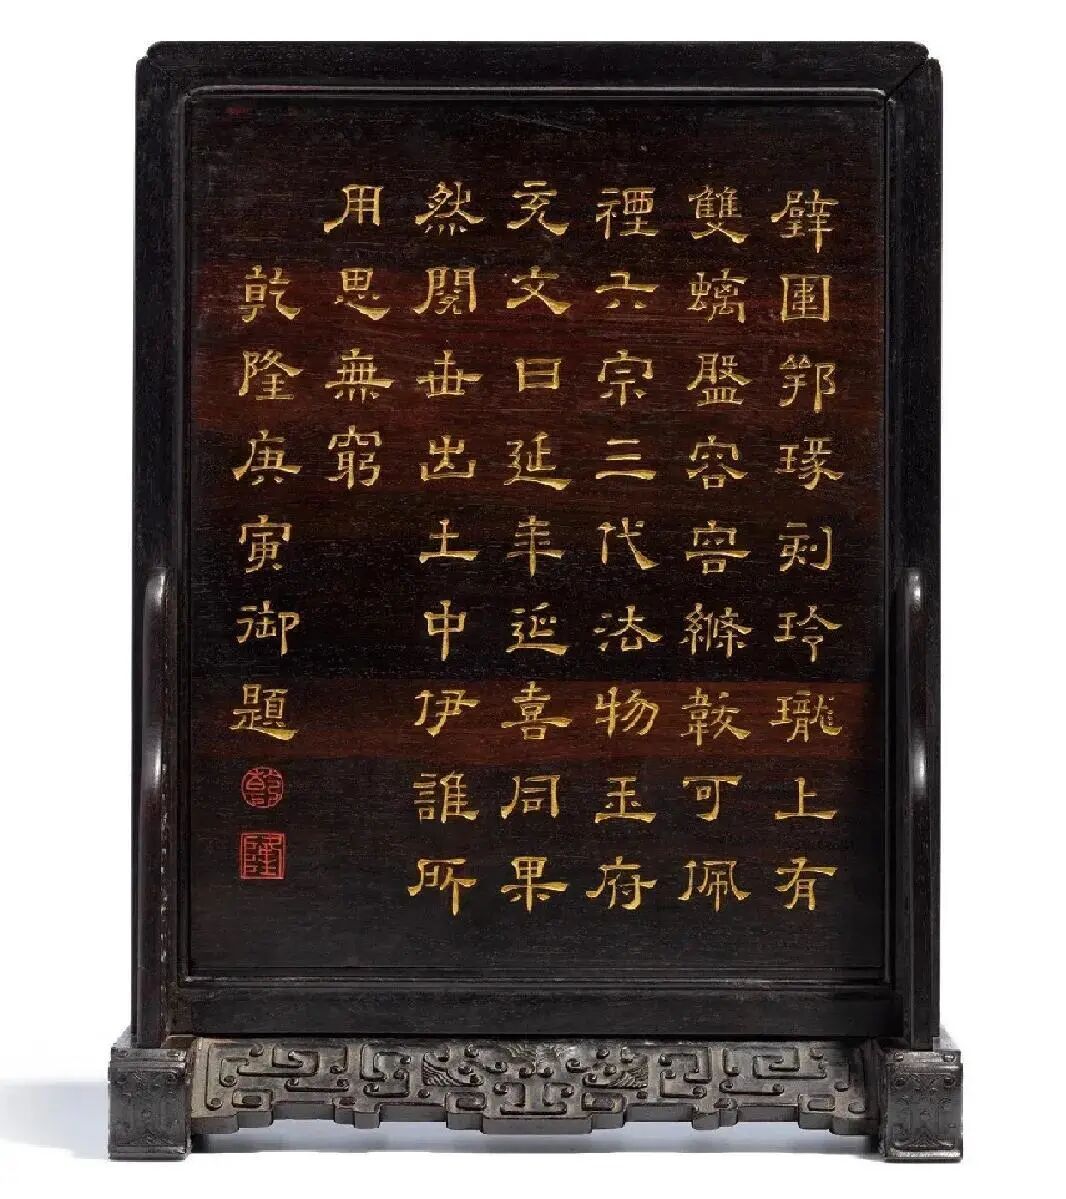 璧圍邦琢刻玲瓏上有
雙螭盤容容絛韍可佩
禋六宗三代法物玉府
充文曰延年延喜同果
然閱世出土中伊誰所
用思無窮
乾隆庚寅御題
乾
隆